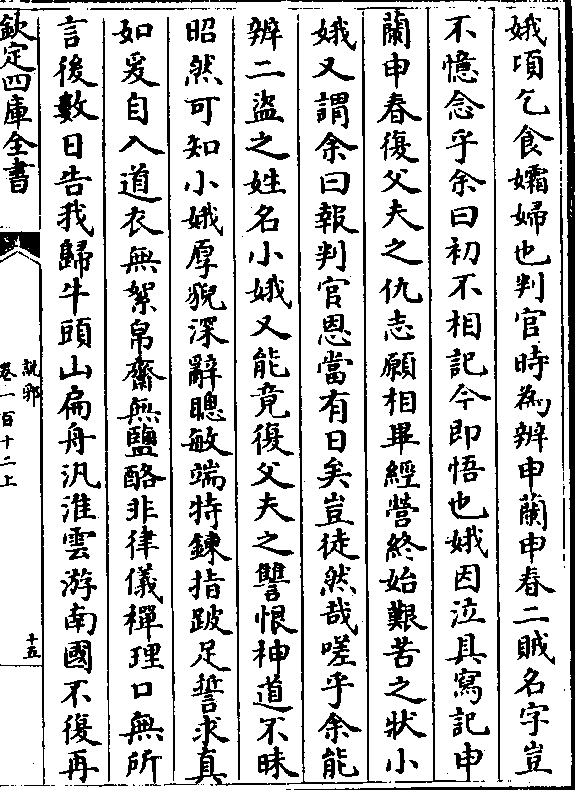 娥項乞食孀婦也判官時為辨申蘭申春二賊名字豈
不憶念乎余曰初不相記今即悟也娥因泣具寫記申
蘭申春復父夫之仇志願相畢經營終始艱苦之狀小
娥又謂余曰報判官恩當有日矣豈徒然哉嗟乎余能
辨二盜之姓名小娥又能竟復父夫之讐恨神道不昧
昭然可知小娥厚貌深辭聰敏端特鍊指跛足誓求真
如爰自入道衣無絮帛齋無鹽酪非律儀禪理口無所
言後數日告我歸牛頭山扁舟汎淮雲游南國不復再
欽定四庫全書
說郛
卷一百十二上
十五